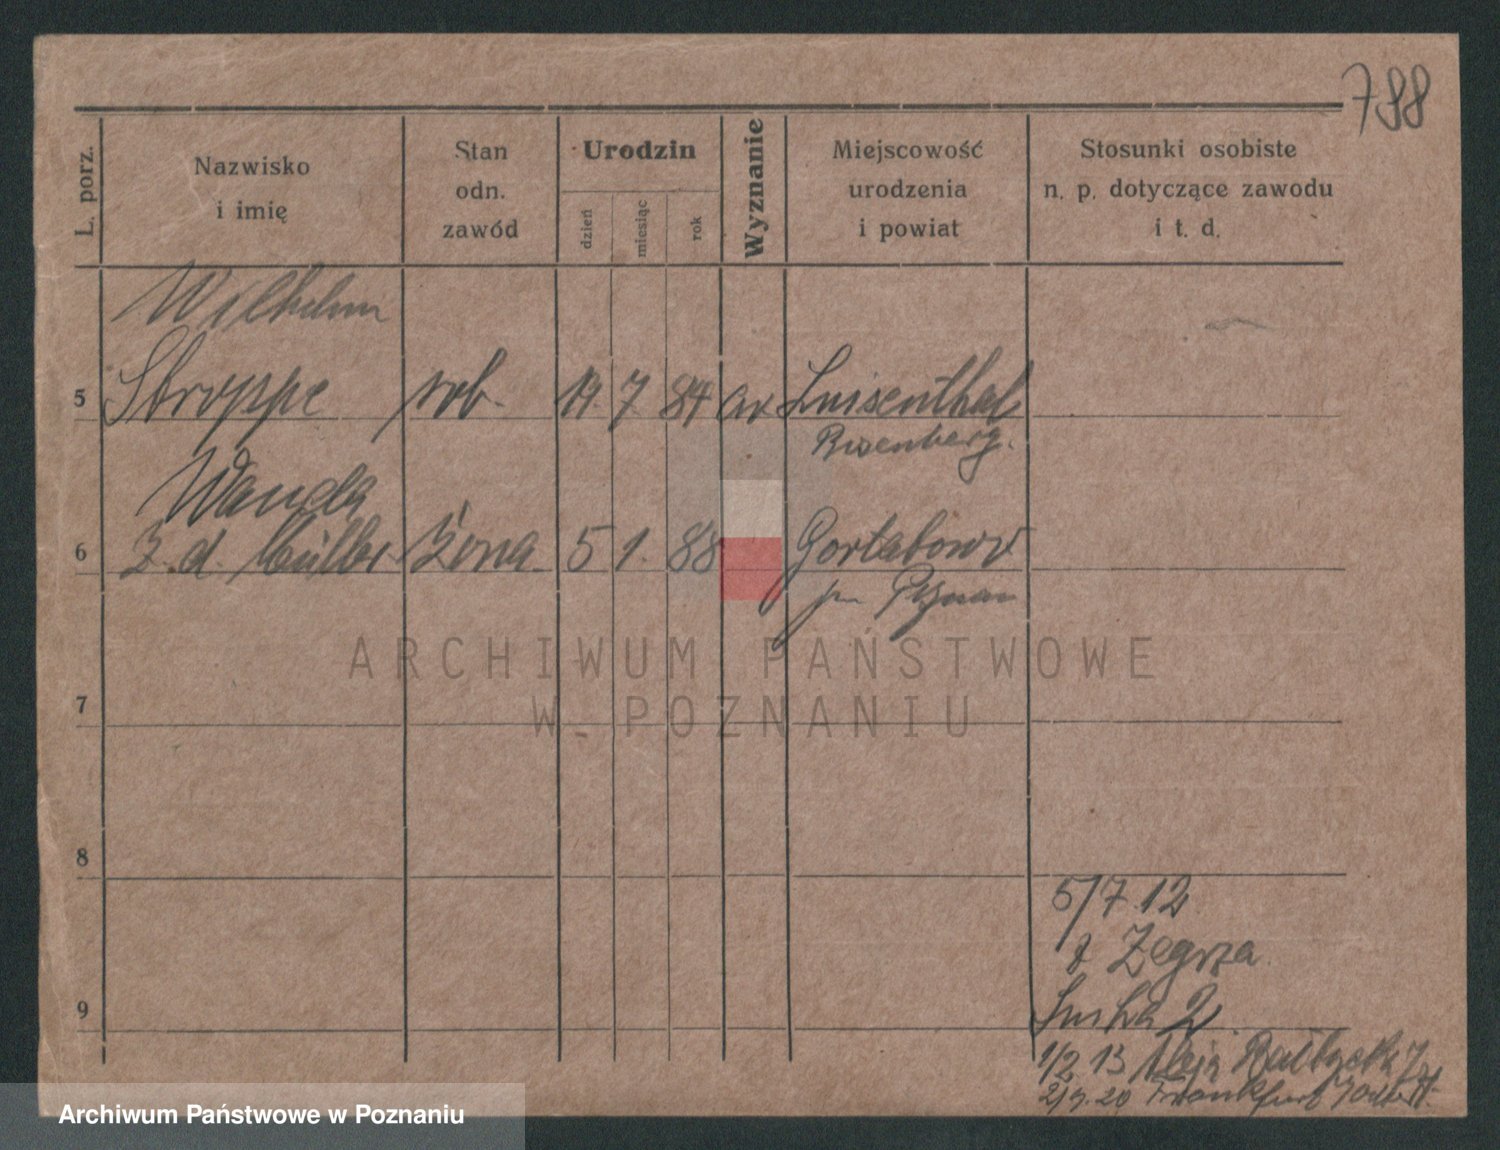 788
L. porz.
Nazwisko
i imię
Stan
odn.
zawód
Urodzin
dzień
miesiąc
rok
Wyznanie
Miejscowość
urodzenia
i powiat
Stosunki osobiste
n. p. dotyczące zawodu
i t. d.
Wilhelm
5 Stroppe rob. 19. 7 84 ew Luisenthal
Rosenberg.
Wanda
6 Z. d. Müller żona 5 1. 88 Gortatowo
Poznań
ARCHIWUM PAŃSTWOWE
W POZNANIU
7
8
5/7 12
z Zegrza
9 2
1/2 13
2/3. 20 Frankfurt
Archiwum Państwowe w Poznaniu